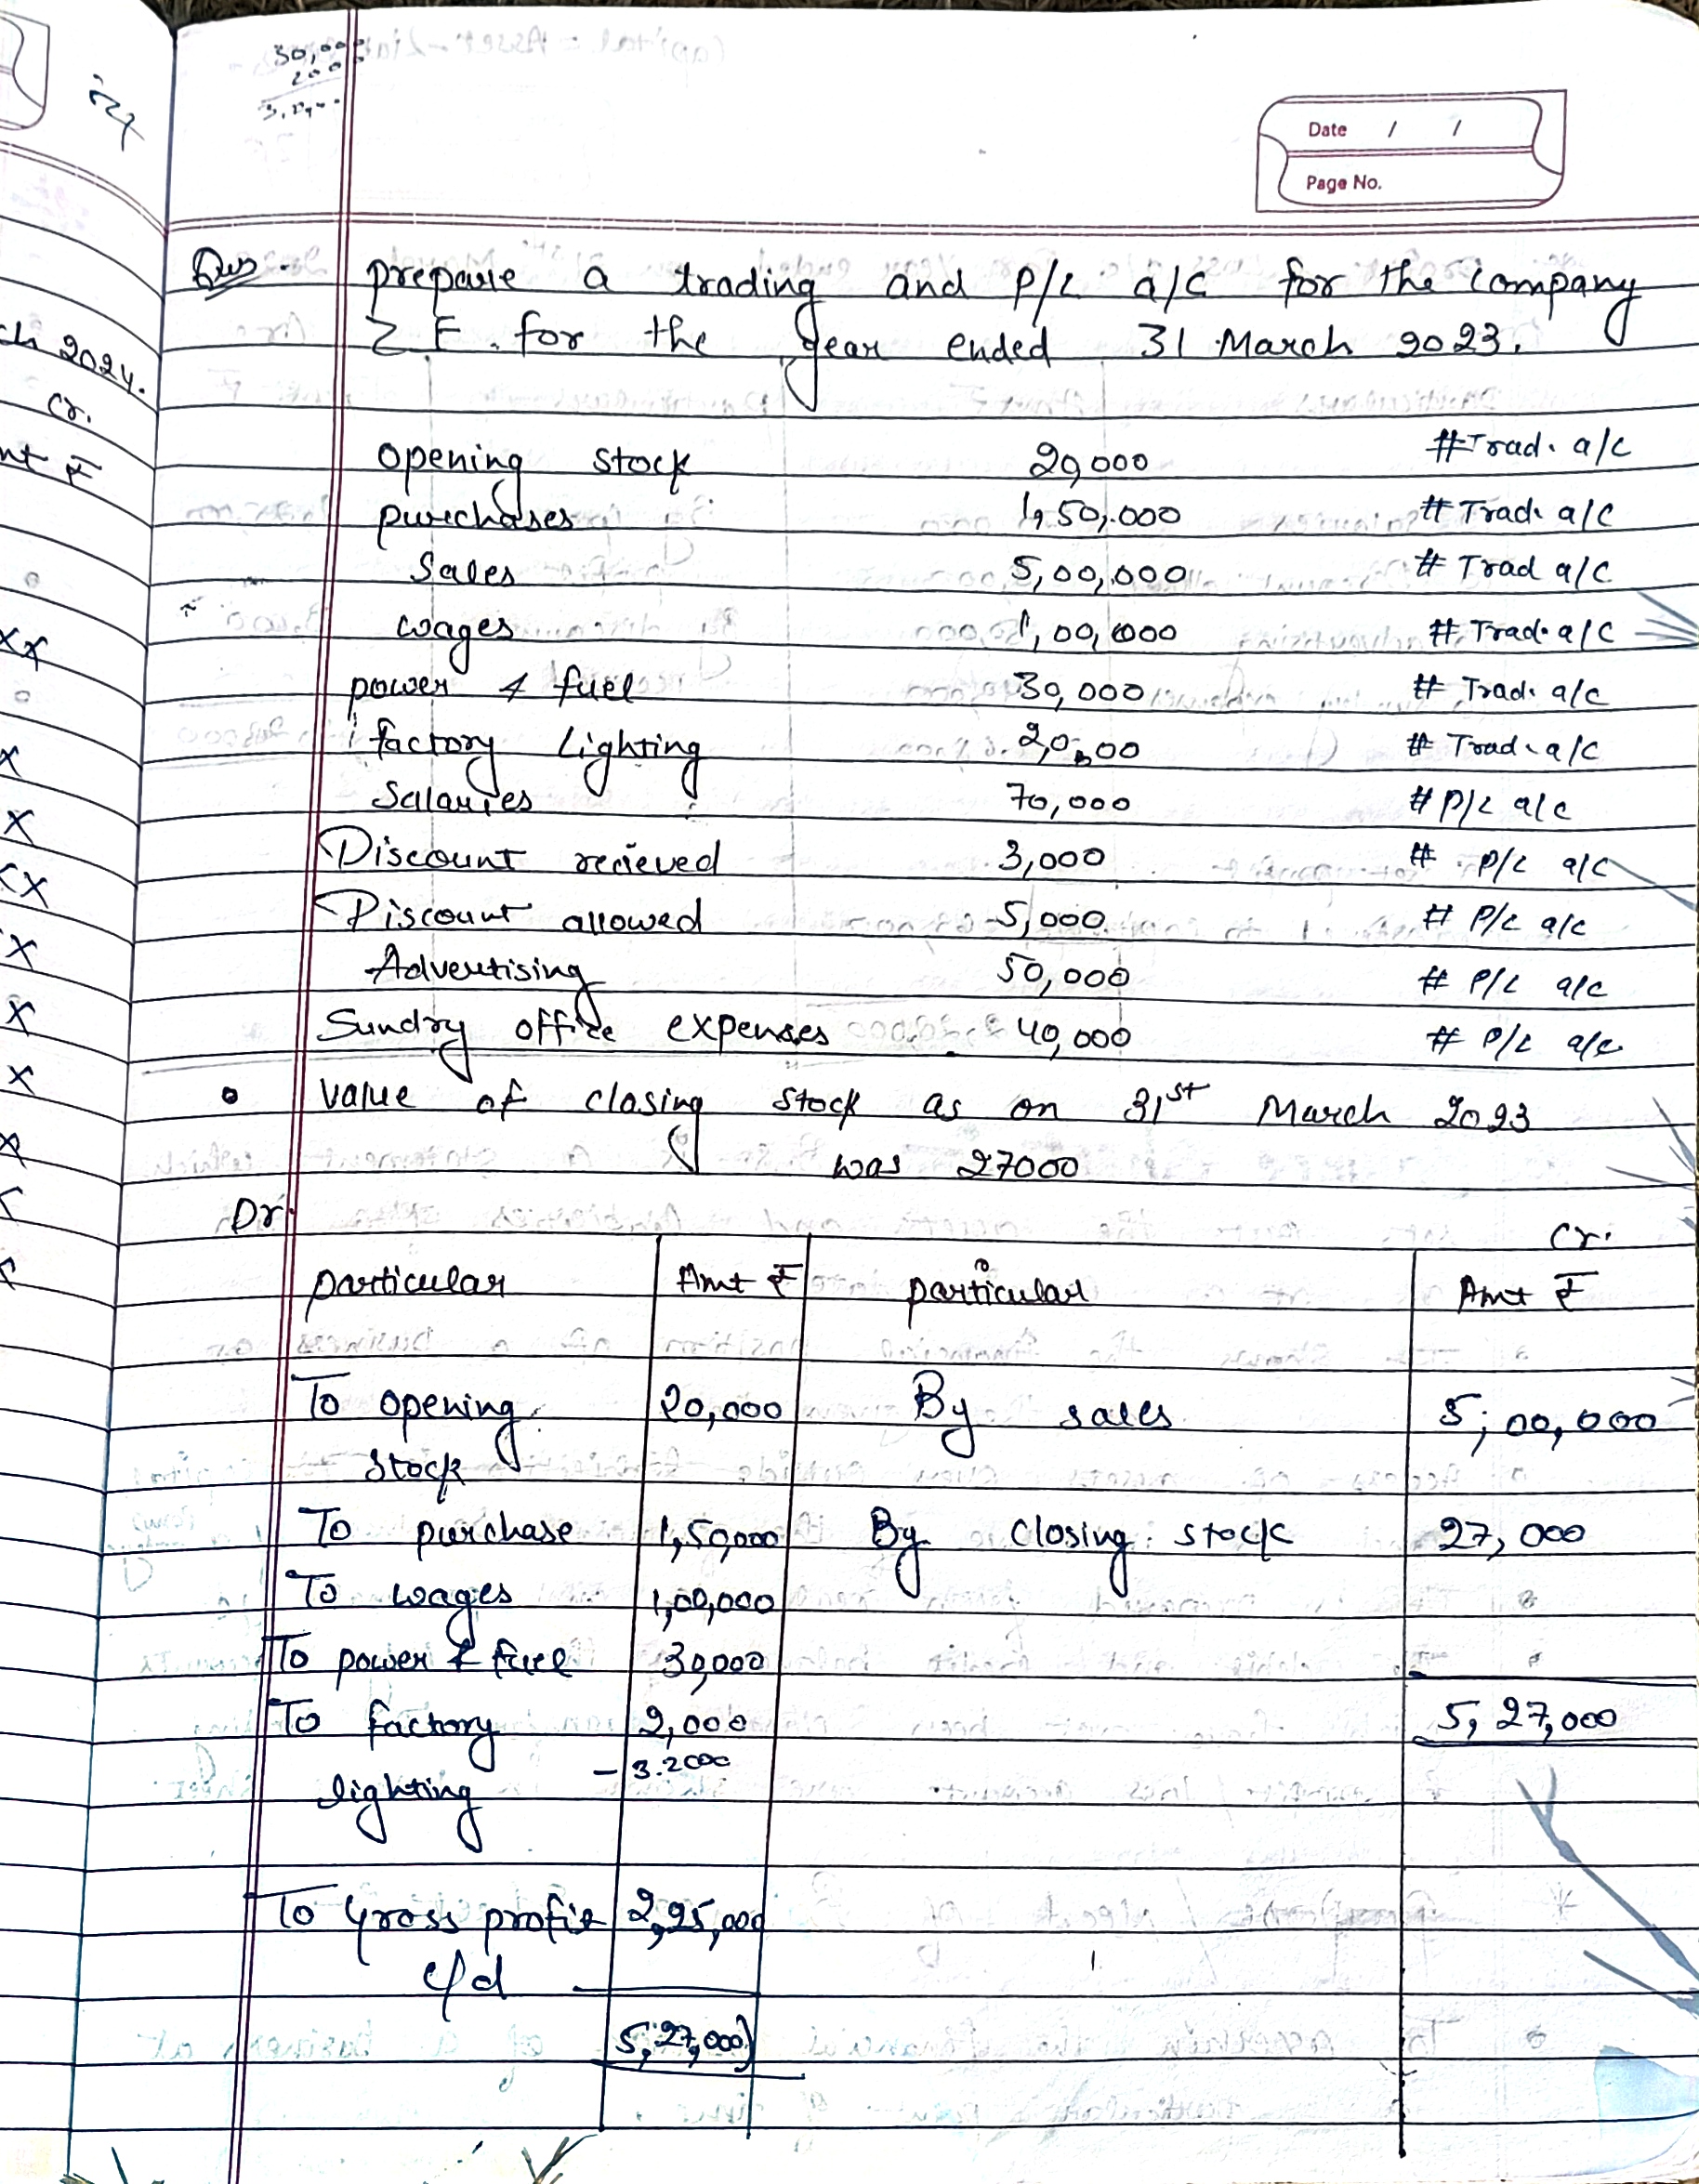 30,000
2000
Date / /
Page No.
ch 2024.
Cr.
nt ₹
Ques. prepare a trading and P/L a/c for the company
Z F. for the year ended 31 March 2023.
opening stock 20,000 #Trad. a/c
purchases 1,50,000 # Trad. a/c
Sales 5,00,000 # Trad a/c
wages 1,00,000 # Trad. a/c
power & fuel 30,000 # Trad. a/c
factory lighting 2,000 # Trad. a/c
Salaries 70,000 # P/L a/c
Discount recieved 3,000 # P/L a/c
Discount allowed 5,000 # P/L a/c
Advertising 50,000 # P/L a/c
Sundry office expenses 40,000 # P/L a/c
• value of closing stock as on 31st March 2023
was 27000
Dr. Cr.
particular Amt ₹ particular Amt ₹
To opening 20,000 By sales 5,00,000
stock
To purchase 1,50,000 By closing stock 27,000
To wages 1,00,000
To power & fuel 30,000
To factory 2,000 5,27,000
lighting - 3.2000
To Gross profit 2,25,000
c/d
5,27,000